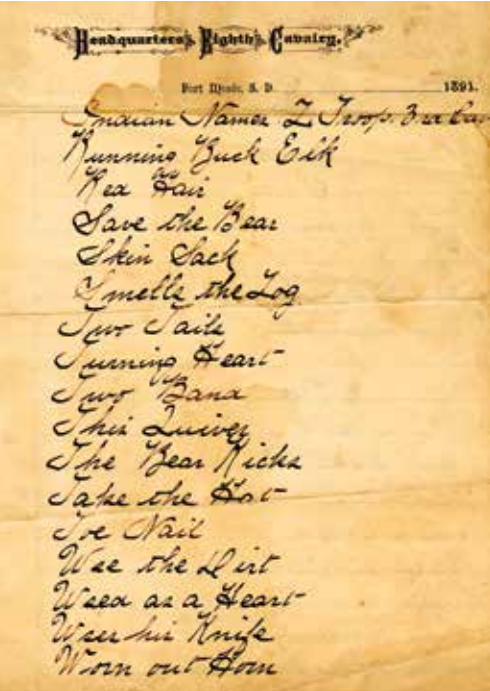 Headquarters Eighth Cavalry.
Fort Meade, S. D. 1891.
Indian Names L Troop. 3rd Cav
Running Buck Elk
Red Hair
Save the Bear
Skin Sack
Smells the Log
Two Tails
Turning Heart
Two Band
This Quiver
The Bear Kicks
Take the Hat
Toe Nail
Use the Dirt
Used as a Heart
Uses his Knife
Worn out Horn